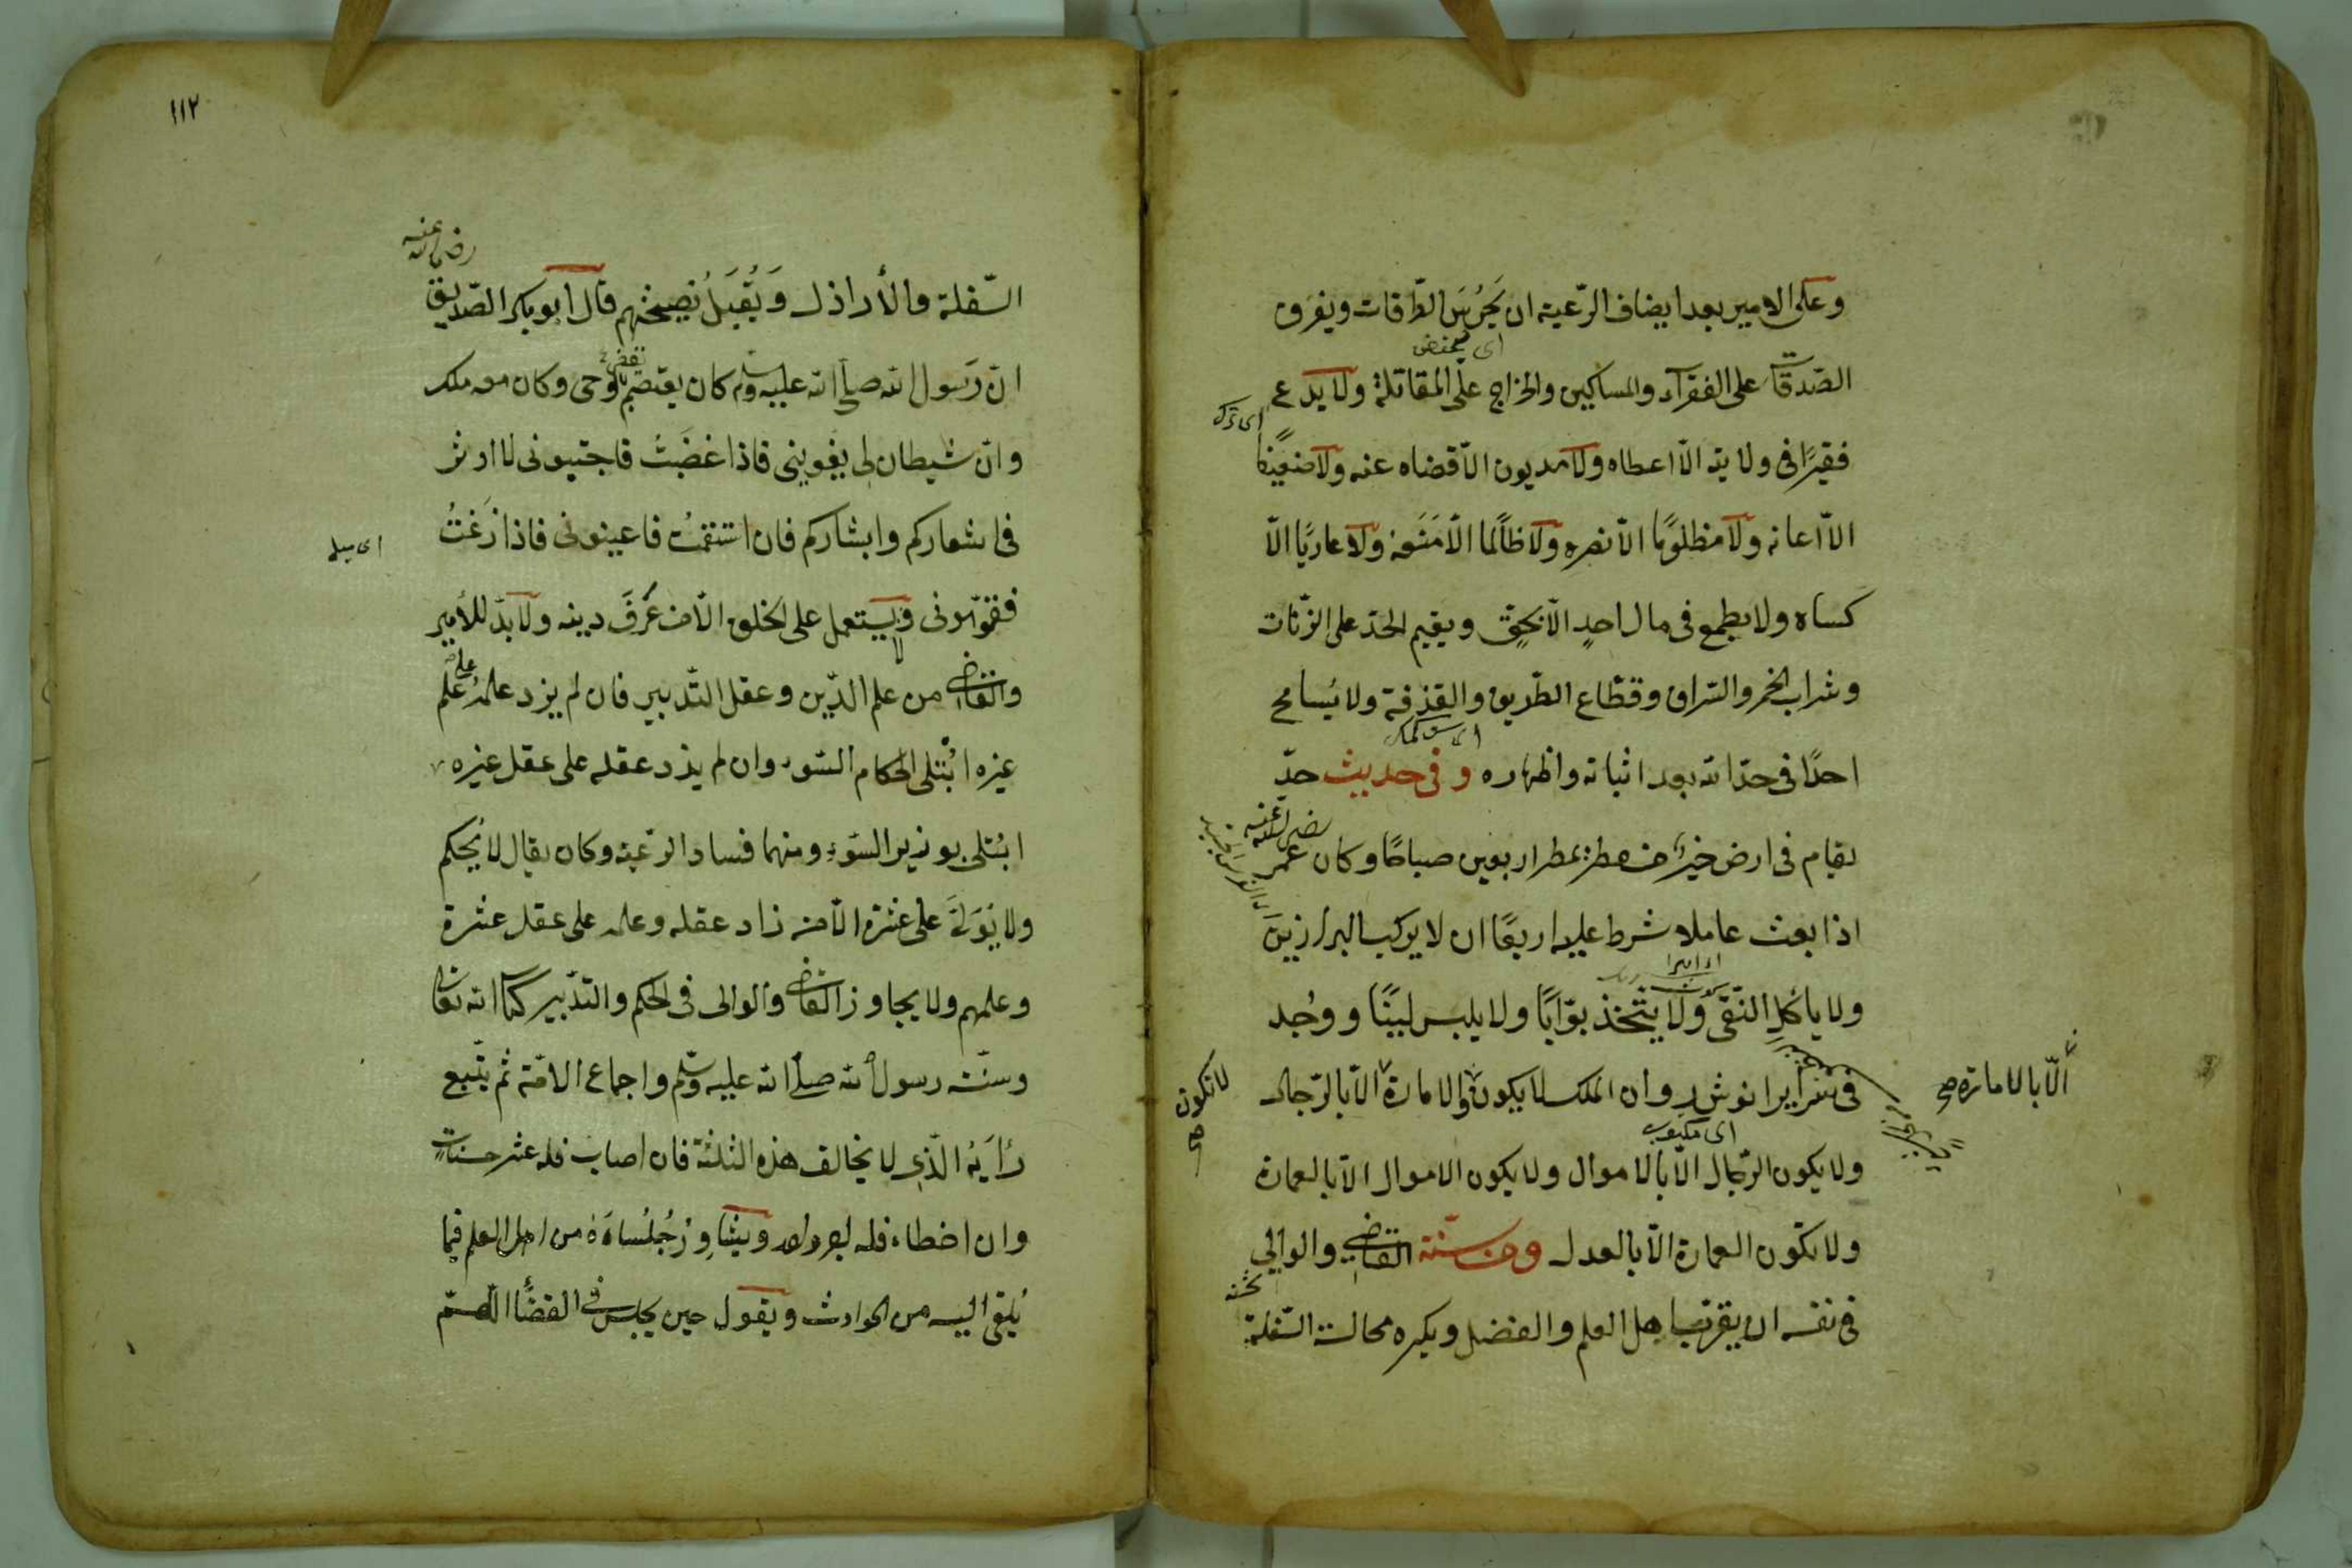 وعلى الامير بعد ايضاف الرّعية ان يَحرُسَ الطّرقات ويفرق
اى
الصّدقات على الفقرآء والمساكين والخراج على المقاتلة ولا يدع
اى ترك
فقيرًا فى ولايته الّا اعطاه ولا مديون الّا قضاه عنه ولا ضعيفًا
الّا اعانه ولا مظلومًا الّا نصره ولا ظالمًا الّا مَنَعه ولا عاريًا الّا
كساه ولا يطمع فى مال احدٍ الّا بحقٍ ويقيم الحدّ على الزّنات
وشراب الخمر والسّراق وقطّاع الطّريق والقذفة ولا يُسامح
احدًا فى حدّ الله بعد اثباته واظهاره وفى حديث حدّ
رضى الله عنه
يقام فى ارض خيرٌ من مطر يمطر اربعين صباحًا وكان عمر
اذا بعث عاملا شرط عليه اربعًا ان لا يركب البراذين
ولا يأكل النّقى ولا يتّخذ بوّابًا ولا يلبس لبيّنًا ووُجد
الّا بالامارة صح
فى سرير انوشروان الملك لا يكون والامارة الّا بالرّجال
لا تكون صح
اى مكتوب
ولا يكون الرّجال الّا بالاموال ولا يكون الاموال الّا بالعمارة
ولا تكون العمارة الّا بالعدل ومن سنّة القاضى والوالى
فى نفسه ان يقرّب اهل العلم والفضل ويكره مجالسة السّفلة
١١٢
رضى الله عنه
السّفلة والأراذل وَيُقبَلُ نصيحتهم قال ابو بكر الصّديق
انّ رَسول الله صلى الله عليه وسلم كان يعتصم بالوحى وكان معه ملك
وانّ شيطان لى يغوينى فاذا غضبتُ فاجتنبونى لا اوثر
فى اشعاركم وابشاركم فان استقمتُ فاعينونى فاذا زَغتُ
اى ميل
فقوّمونى ولا يستعمل على الخلق الّا من عَرَفَ دينه ولا بدّ للأمير
والقاضى من علم الدّين وعقل التّدبير فان لم يزد علمُه على علم
غيره ابُتلى الحكام السّوء وان لم يزد عقله على عقل غيره
ابُتلى بوزير السّوء ومنهما فساد الرّعية وكان يقال لا يحُكم
ولا يُوَلّى على عشرة الّا من زاد عقله وعلمه على عقل عشرة
وعلمهم ولا يجاوز القاضى والوالى فى الحكم والتدّبير كتاب الله تعالى
وسنّت رسول الله صلى الله عليه وسلّم واجماع الامّة ثم يتّبع
رَأيَهُ الّذى لا يخالف هذه الثلثة فان اصاب فله عشر حسنات
وان اخطاء فله اجر واحد ويشاوِرُ جُلساءَهُ من اهل العلم فيما
يُلقى اليه من الحوادث ويقول حين يجلس فى القضاء اللّهمّ